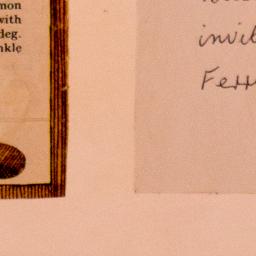 mon
with
deg.
nkle
invil
Ferr